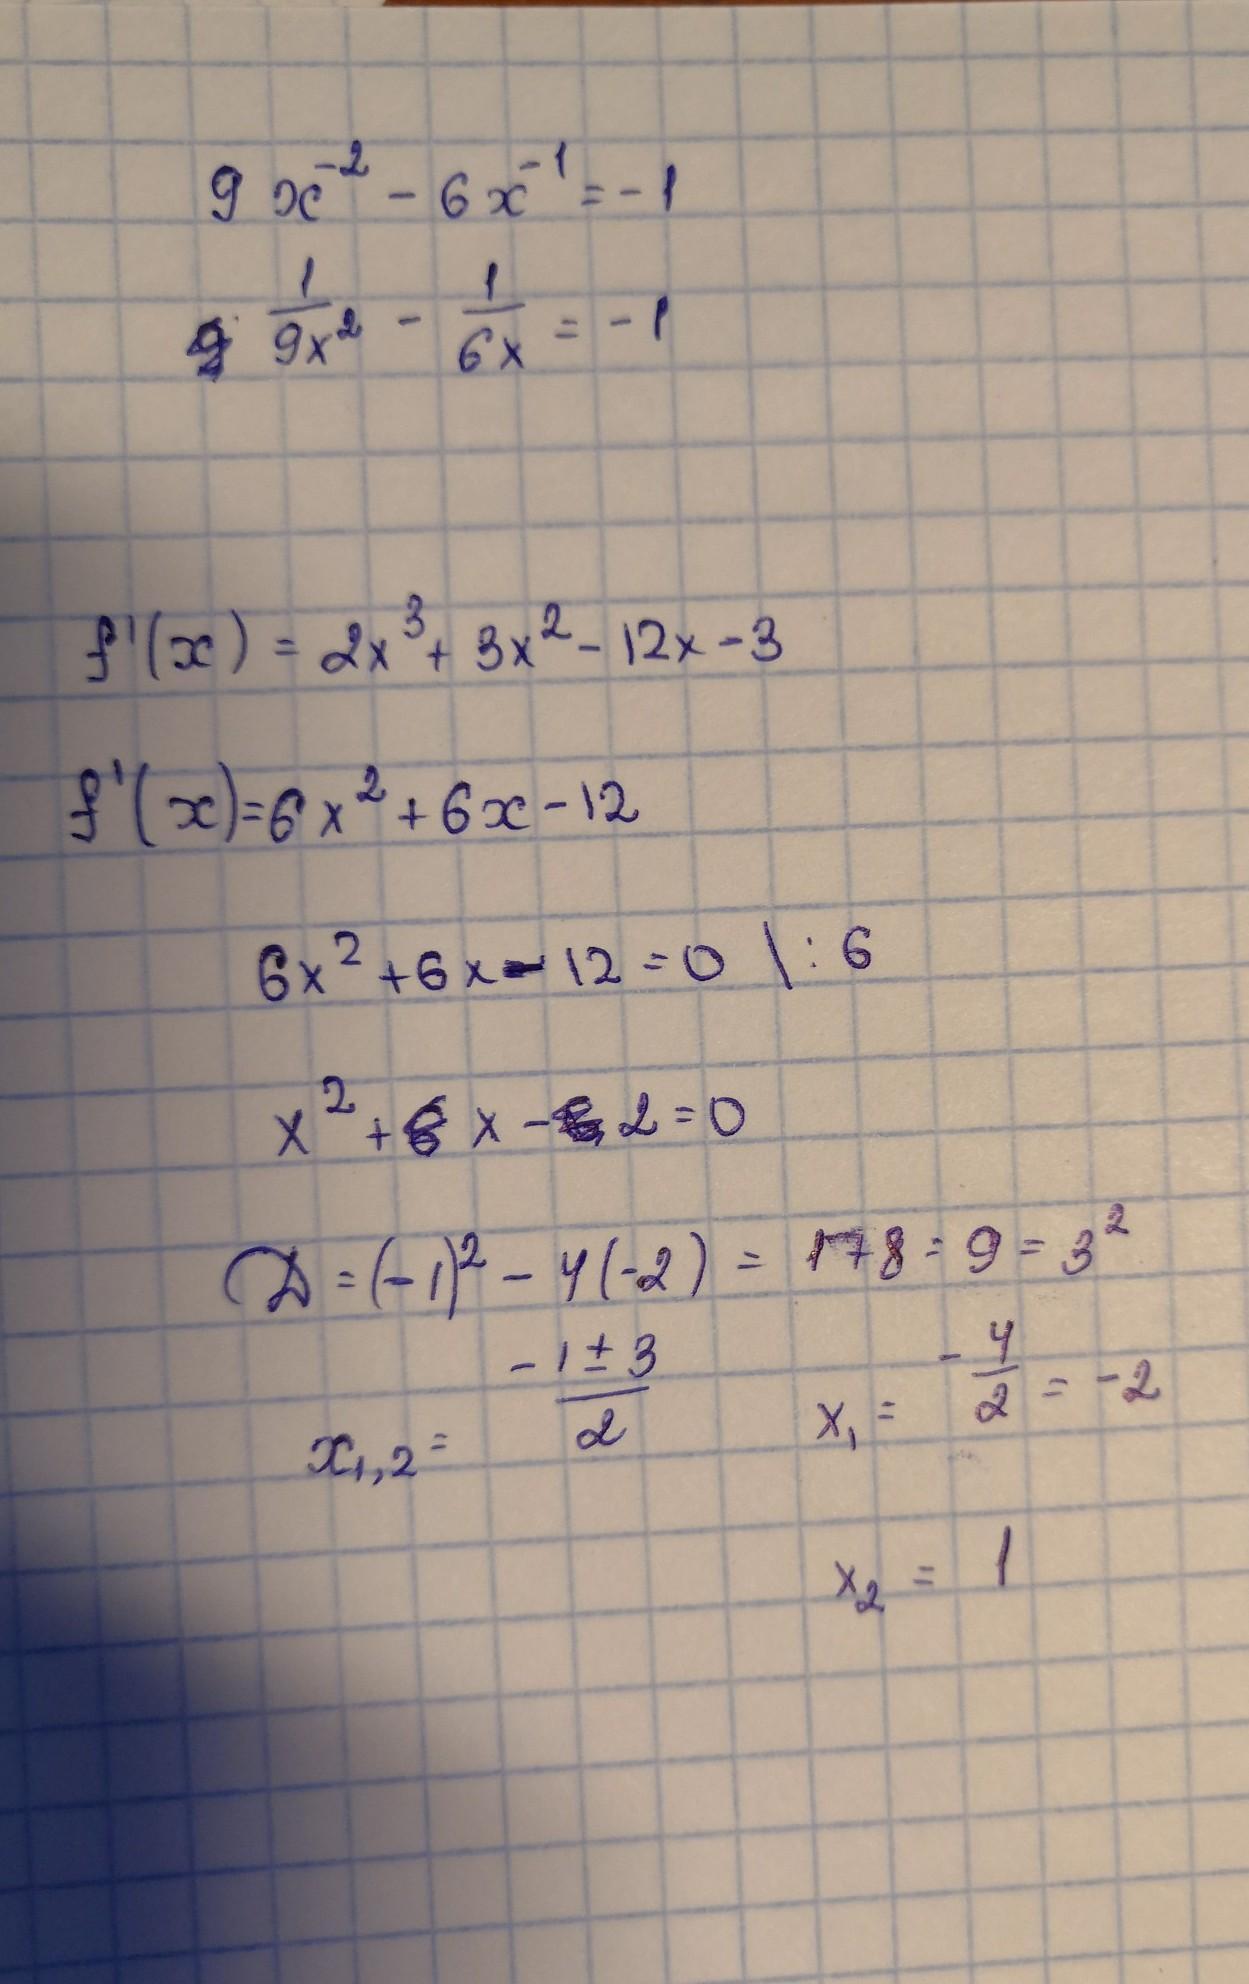 9 x⁻² - 6x⁻¹ = -1
1/9x² - 1/6x = -1
f'(x) = 2x³ + 3x² - 12x - 3
f'(x) = 6x² + 6x - 12
6x² + 6x - 12 = 0 | : 6
x² + x - 2 = 0
D = (-1)² - 4(-2) = 1+8 = 9 = 3²
x₁,₂ = -1 ± 3/2 x₁ = -4/2 = -2
x₂ = 1